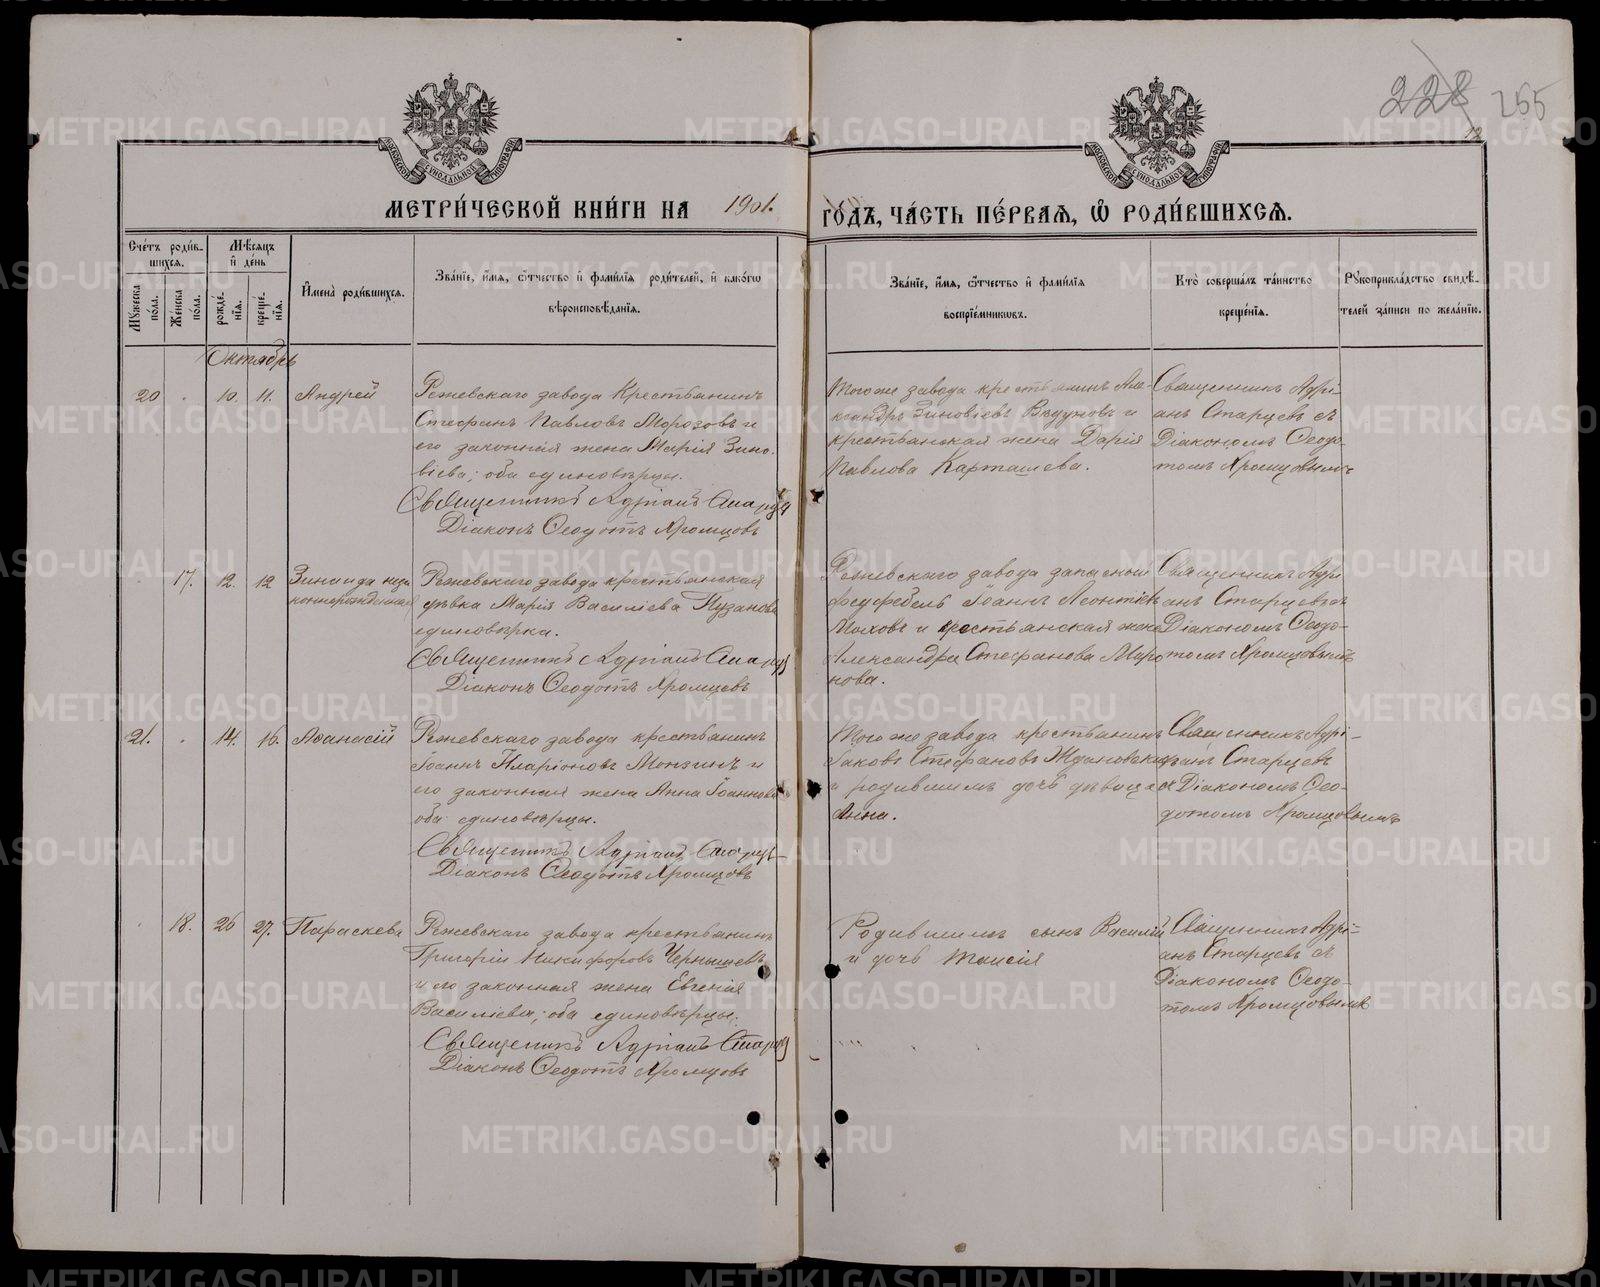 228 255
12
МЕТРИ́ЧЕСКОЙ КНИ́ГИ НА 1901. ГО́ДЪ, ЧА́СТЬ ПЕ́РВАЯ, Ѽ РОДИ́ВШИХСЯ.
Сче́тъ роди́в-
шихся.
Мѣ́сяцъ
и҆ де́нь
Мꙋ́жеска по́ла.
Же́нска по́ла.
рожде́-
нїя.
креще́-
нїя.
И҆мена̀ роди́вшихся.
Зва́нїе, и҆́мя, ѻ҆́тчество и҆ фамѝлїя роди́телей, и҆ како́гѡ
вѣроисповѣ́данїя.
Зва́нїе, и҆́мя, ѻ҆́тчество и҆ фамѝлїя
воспрїе́мникѡвъ.
Кто̀ соверша́лъ та́инство
креще́нїя.
Рꙋкоприкла́дство свидѣ́-
телей за́писи по жела́нїю.
Октябрь
20 . 10. 11. Андрей
Режевскаго завода Крестьянинъ
Стефанъ Павловъ Морозовъ и
его законная жена Марія Зино-
віева; оба единовѣрцы.
Священникъ Адріанъ Старцевъ
Діаконъ Ѳеодотъ Хромцовъ
Тогоже завода крестьянинъ Але-
ксандръ Зиновіевъ Ведуновъ и
крестьянская жена Дарія
Павлова Карташева.
Священникъ Адрі-
анъ Старцевъ съ
Діакономъ Ѳеодо-
томъ Хромцовымъ
. 17. 12. 12 Зинаида неза-
коннорожденная
Режевскаго завода крестьянская
дѣвка Марія Василіева Пузанова
единовѣрка.
Священникъ Адріанъ Старцевъ
Діаконъ Ѳеодотъ Хромцовъ
Режевскаго завода запасный
Феуфебель Іоаннъ Леонтіевъ
и крестьянская жена
Александра Стефанова Миро-
нова.
Священникъ Адрі
анъ Старцевъ съ
Діакономъ Ѳеодо-
томъ Хромцовымъ
21. . 14. 16. Аѳанасій
Режевскаго завода крестьянинъ
Іоаннъ Иларіоновъ Монзинъ и
его законная жена Анна Іоаннова
оба единовѣрцы.
Священникъ Адріанъ Старцевъ
Діаконъ Ѳеодотъ Хромцовъ
Того же завода крестьянинъ
Іаковъ Стефановъ Ждановскихъ
и родившимъ дочь дѣвица
Анна.
Священникъ Адрі-
анъ Старцевъ
съ Діакономъ Ѳео-
дотомъ Хромцовымъ
. 18. 26 27. Параскева
Режевскаго завода крестьянинъ
Григорій Никифоровъ Чернышевъ
и его законная жена Евгенія
Василіева; оба единовѣрцы.
Священникъ Адріанъ Старцевъ
Діаконъ Ѳеодотъ Хромцовъ
Родившимъ сынъ Василій
и дочь Таисія
Священникъ Адрі-
анъ Старцевъ съ
Діакономъ Ѳеодо-
томъ Хромцовымъ
METRIKI.GASO-URAL.RU